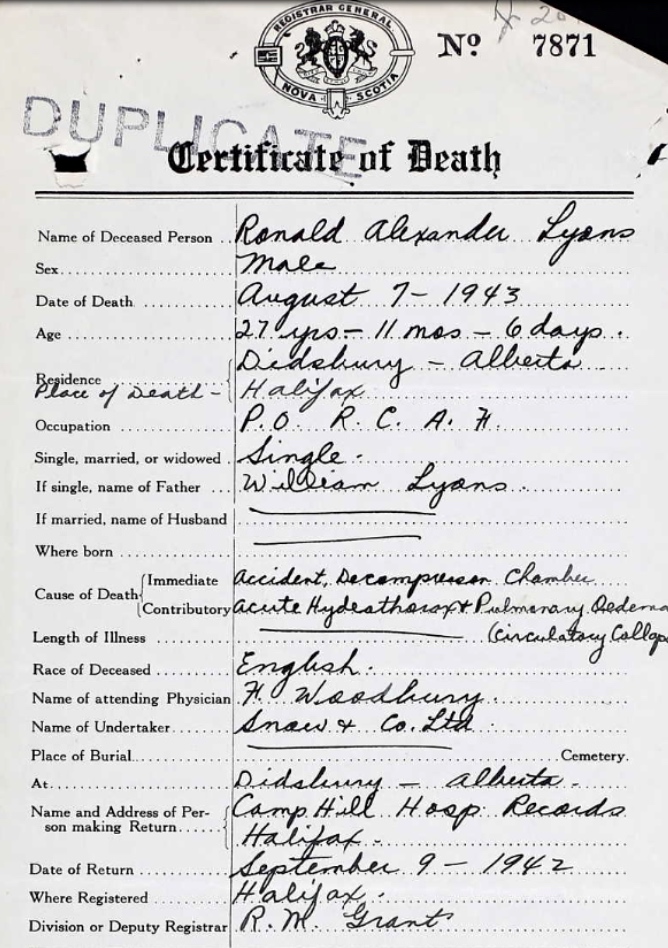 REGISTRAR GENERAL
NOVA SCOTIA
Nº 7871
DUPLICATE
Certificate of Death
Name of Deceased Person .. Ronald Alexander Lyons
Sex Male
Date of Death August 7 - 1943
Age 27 yrs - 11 mos - 6 days.
Residence Didsbury - Alberta
Place of Death - Halifax
Occupation P.O. R.C.A.F.
Single, married, or widowed Single.
If single, name of Father William Lyons
If married, name of Husband
Where born
Cause of Death Immediate Accident, Decompression Chamber
Contributory Acute Hydrothorax & Pulmonary Oedema
Length of Illness (Circulatory Collaps
Race of Deceased English.
Name of attending Physician F. Woodbury.
Name of Undertaker Snow & Co. Ltd
Place of Burial Cemetery.
At Didsbury - Alberta -
Name and Address of Per- Camp Hill Hosp Records
son making Return Halifax.
Date of Return September 9 - 1942
Where Registered Halifax.
Division or Deputy Registrar R. M. Grant